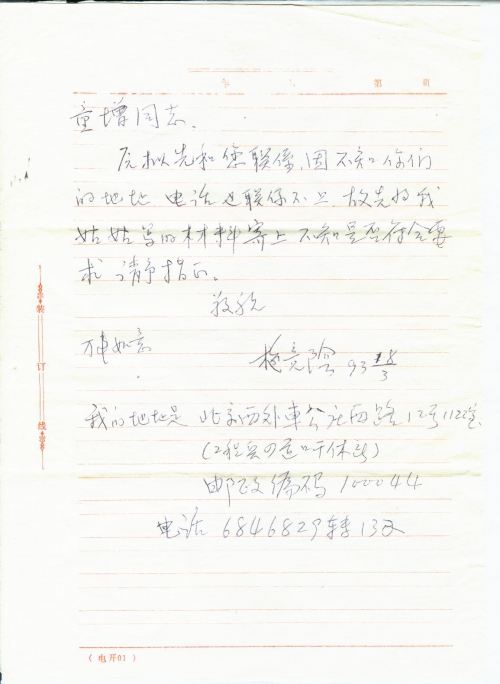 第 页
童增同志、
原拟先和您联系,因不知你们
的地址 电话也联系不上,故先将我
姑姑写的材料寄上 不知是否符合要
求 请静指正。
敬祝
万事如意
93 18/3
装
订
线
我的地址是 北京西外車公庄西路12号1122室
邮政编码 100044
电话 6846829转13
(电开01)